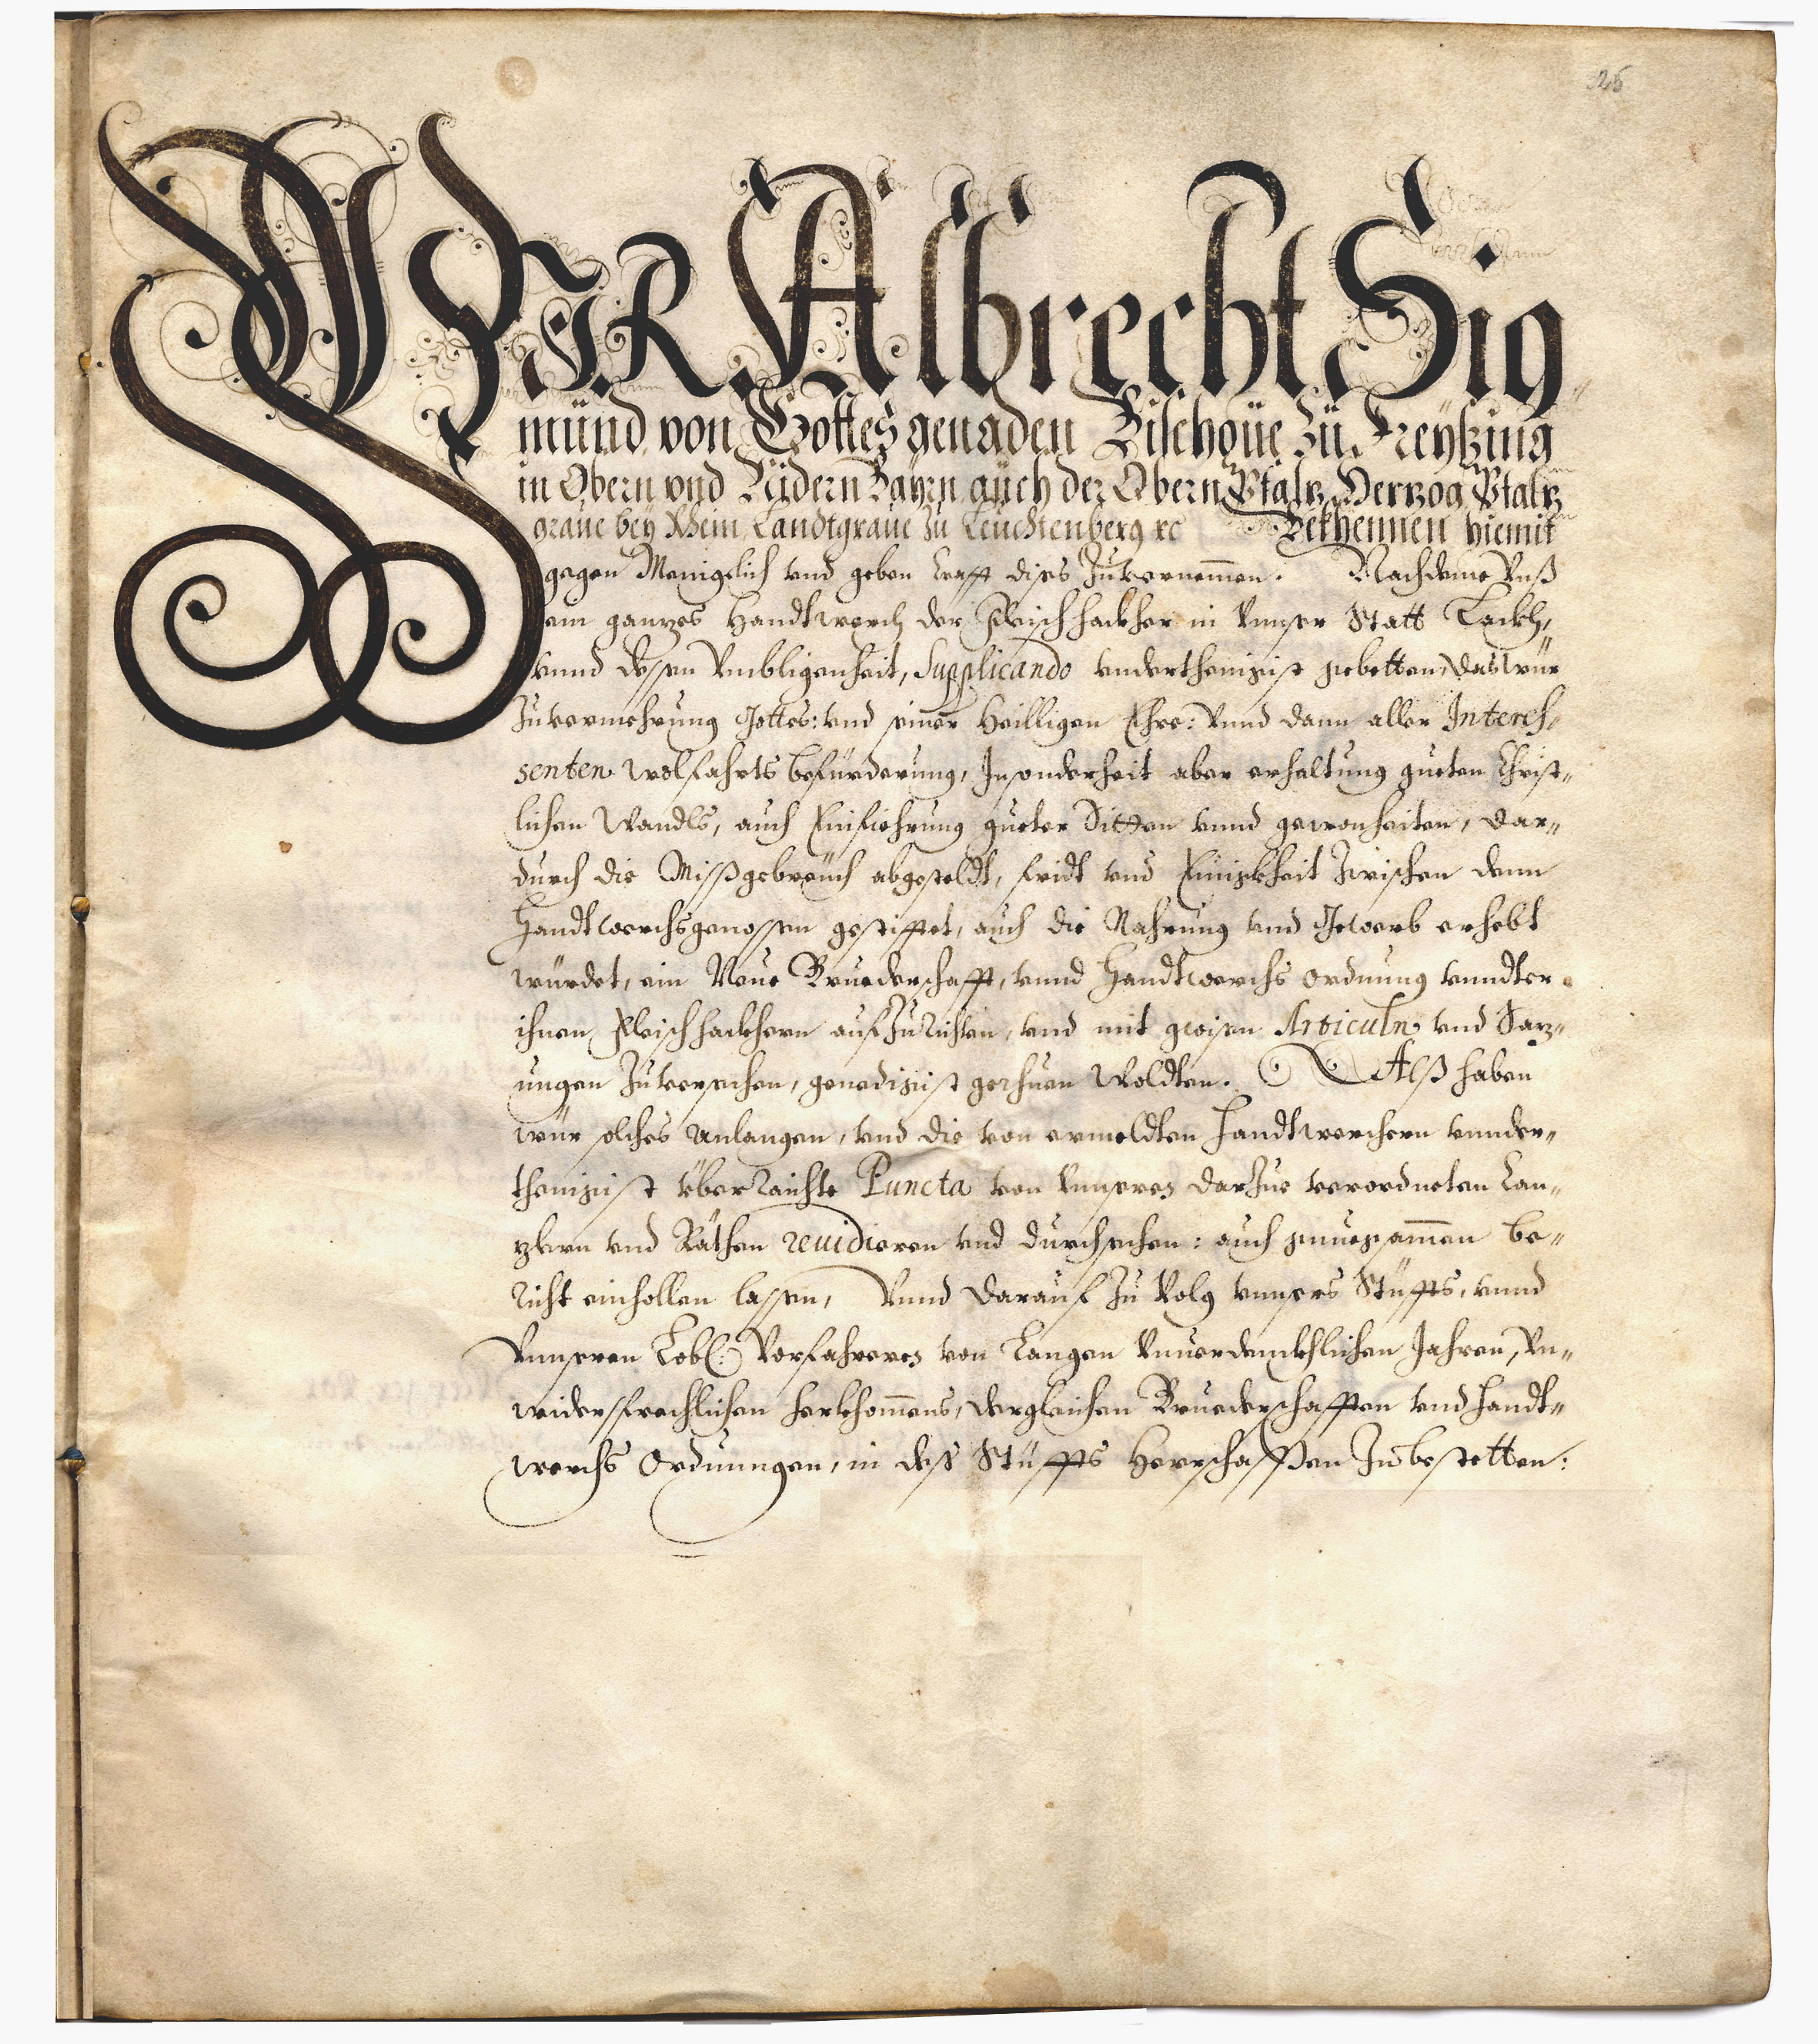 325
WIR Albrecht Sig
mund von Gottes genaden Bischoue zu Freyßing
in Obern vnd Nidern Bayrn auch der Obern Pfaltz Hertzog Pfaltz
graue bey Rhein, Landtgraue zu Leuchtenberg ꝛc Bekhennen hiemit
gegen Menigelich vnd geben Crafft diß Zuvernemmen. Nachdeme Vnß
ein ganzes Handtwerch der Fleischhackher in Vnnser Statt Lackh,
vnnd dessen Vmbligenheit, Supplicando vnderthenigist gebetten, das wür
Zu vermehrung Gottes: vnd seiner Heilligen Ehre: Vnnd dann aller Interes„
senten wolfahrts befürderung, Insonderheit aber erhaltung gueten Christ„
lichen Wandls, auch Einfiehrung gueter Sitten vnnd gewonheiten, dar„
durch die Mißgebreüch abgestöldt, fridt vnd Einigkheit Zwischen denn
Handtwerchsgenossen gestifftet, auch die Nahrung vnd Gewerb erhebt
würdet, ein Neue Bruederschafft, vnnd Handtwerchs ordnung vnndter
ihnen Fleischhackhern auf Zurichten, vnd mit gwisen Articuln vnd Saz„
ungen Zuversehen, genedigist geruhen woldten. Alß haben
wür solches anlangen, vnd die von ermeldten Handtwerchern vnnder„
thenigist überraichte Puncta von Vnnseren darzue verordneten Can„
zlern vnd Räthen reuidieren vnd durchsehen: auch genuegsammen be„
richt einhollen lassen, Vnnd darauf Zu Volg vnnsers Stüffts, vnnd
Vnnseren Lobl: Vorfahreren von Langen Vnuerdenckhlichen Jahren, Vn„
widersprechlichen herkhommens, dergleichen Bruederschafften vnd Handt„
werchs Ordnungen, in deß Stüffts Herrschafften Zubestetten: